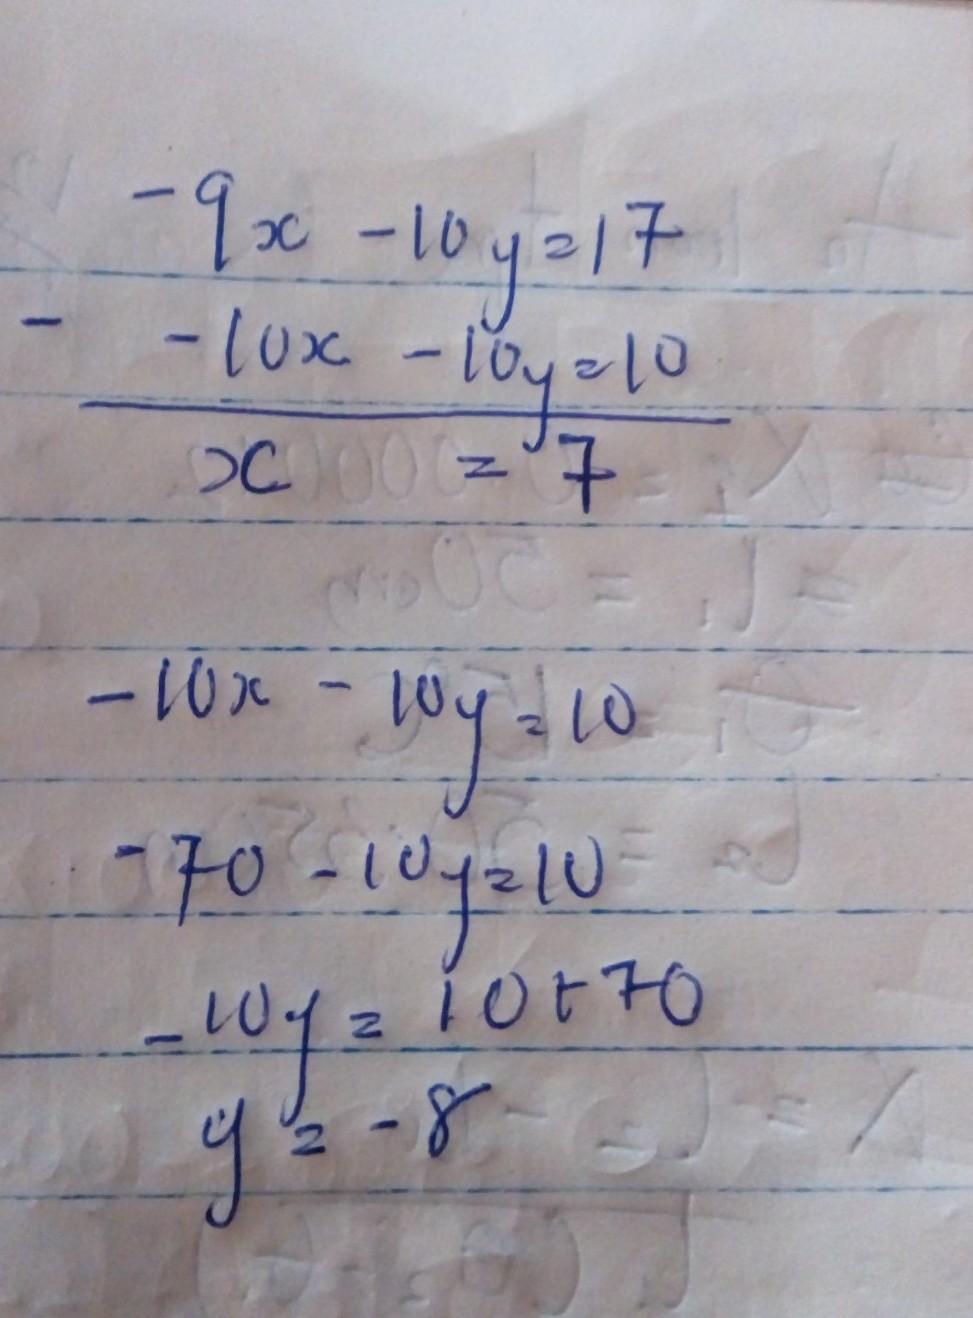 -9x -10y=17
- -10x -10y=10
x = 7
-10x - 10y=10
-70 -10y=10
-10y= 10+70
y = -8